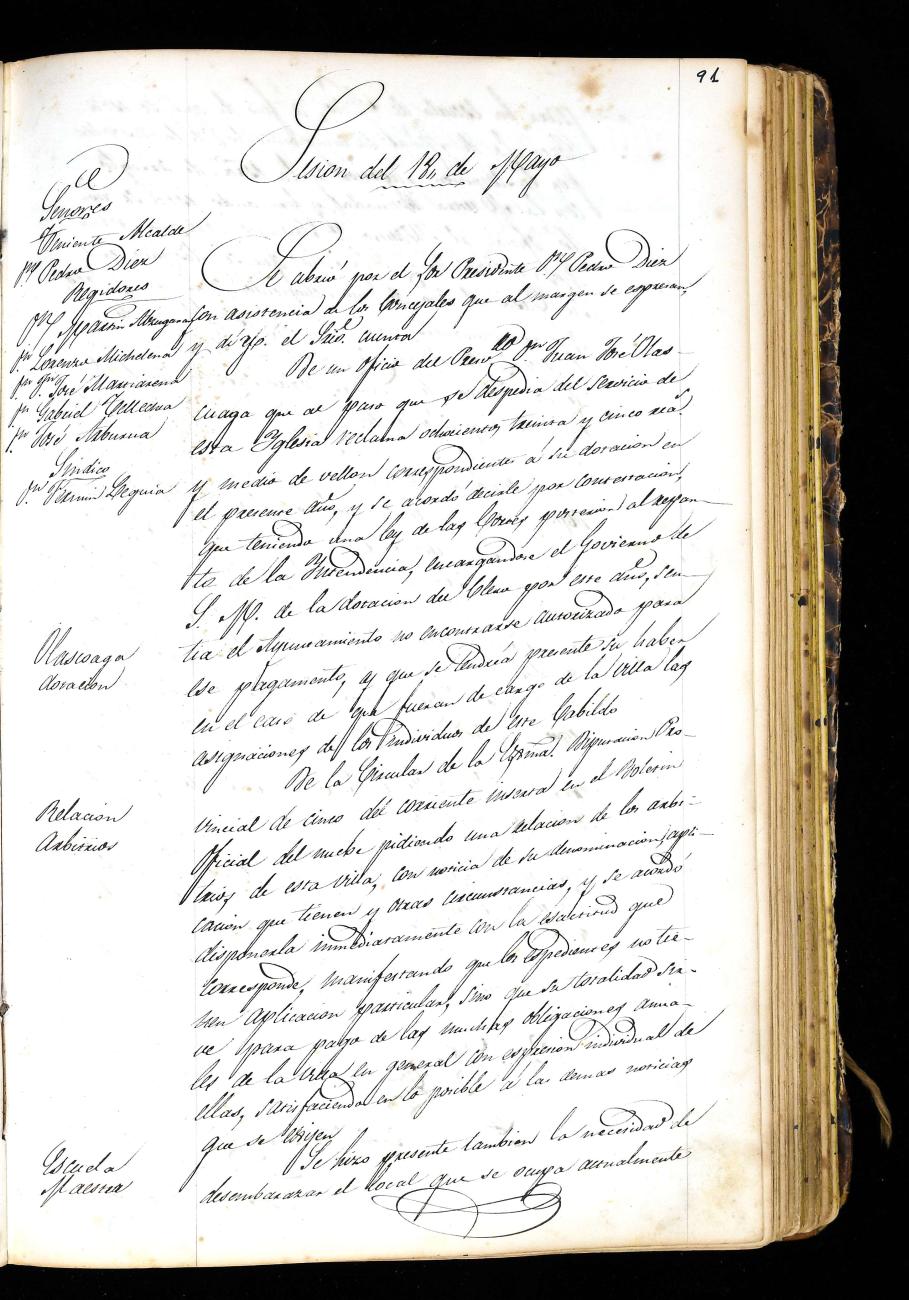 91
Sesion del 18, de Mayo
Señores
Teniente Alcalde
Dn Pedro Diez
Regidores
Dn Martin
Dn Lorenzo Michelena
Dn Jn José Martiarena
Dn Gabriel Tellechea
Dn José Aramburu
Sindico
Dn Fermin Leguia
Se abrió por el Sor Presidente Dn Pedro Diez
con asistencia de los Concejales que al margen se expresan,
y di yo el Srio. cuenta
De un Oficio del Presvro Dn Juan José Olas-
cuaga que al paso que se despedia del servicio de
esta Yglesia reclama ochocientos treinta y cinco reas
y medio de vellon correspondientes á su dotacion en
el presente año, y se acordó decirle por contestacion,
que teniendo una ley de las Cortes posterior al repar-
to de la Yntendencia, encargandose el Govierno de
S. M. de la dotacion del Clero por este año, sen-
tia el Ayuntamiento no encontrarse autorizado para
ese pagamento, y que se tendría presente su haber
en el caso de que fueran de cargo de la Villa las
asignaciones de los individuos de este Cabildo
Olascoaga
dotacion
De la Circular de la Exma. Diputacion Pro-
vincial de cinco del corriente inserta en el Boletin
Oficial del nueve pidiendo una relacion de los arbi-
trios, de esta Villa, con noticia de su denominacion, apli-
cación que tienen y otras circunstancias, y se acordó
disponerla inmediatamente con la esactitud que
corresponde, manifestando que los espedientes no tie-
nen aplicacion particular, sino que su totalidad sir-
ve para pago de las muchas obligaciones anua-
les de la Villa en general con espresion individual de
ellas, satisfaciendo en lo posible á las demas noticias
que se exijen
Relacion
Arbitrios
Se hizo presente tambien la necesidad de
desembarazar el local que se ocupa actualmente
Escuela
Maestra